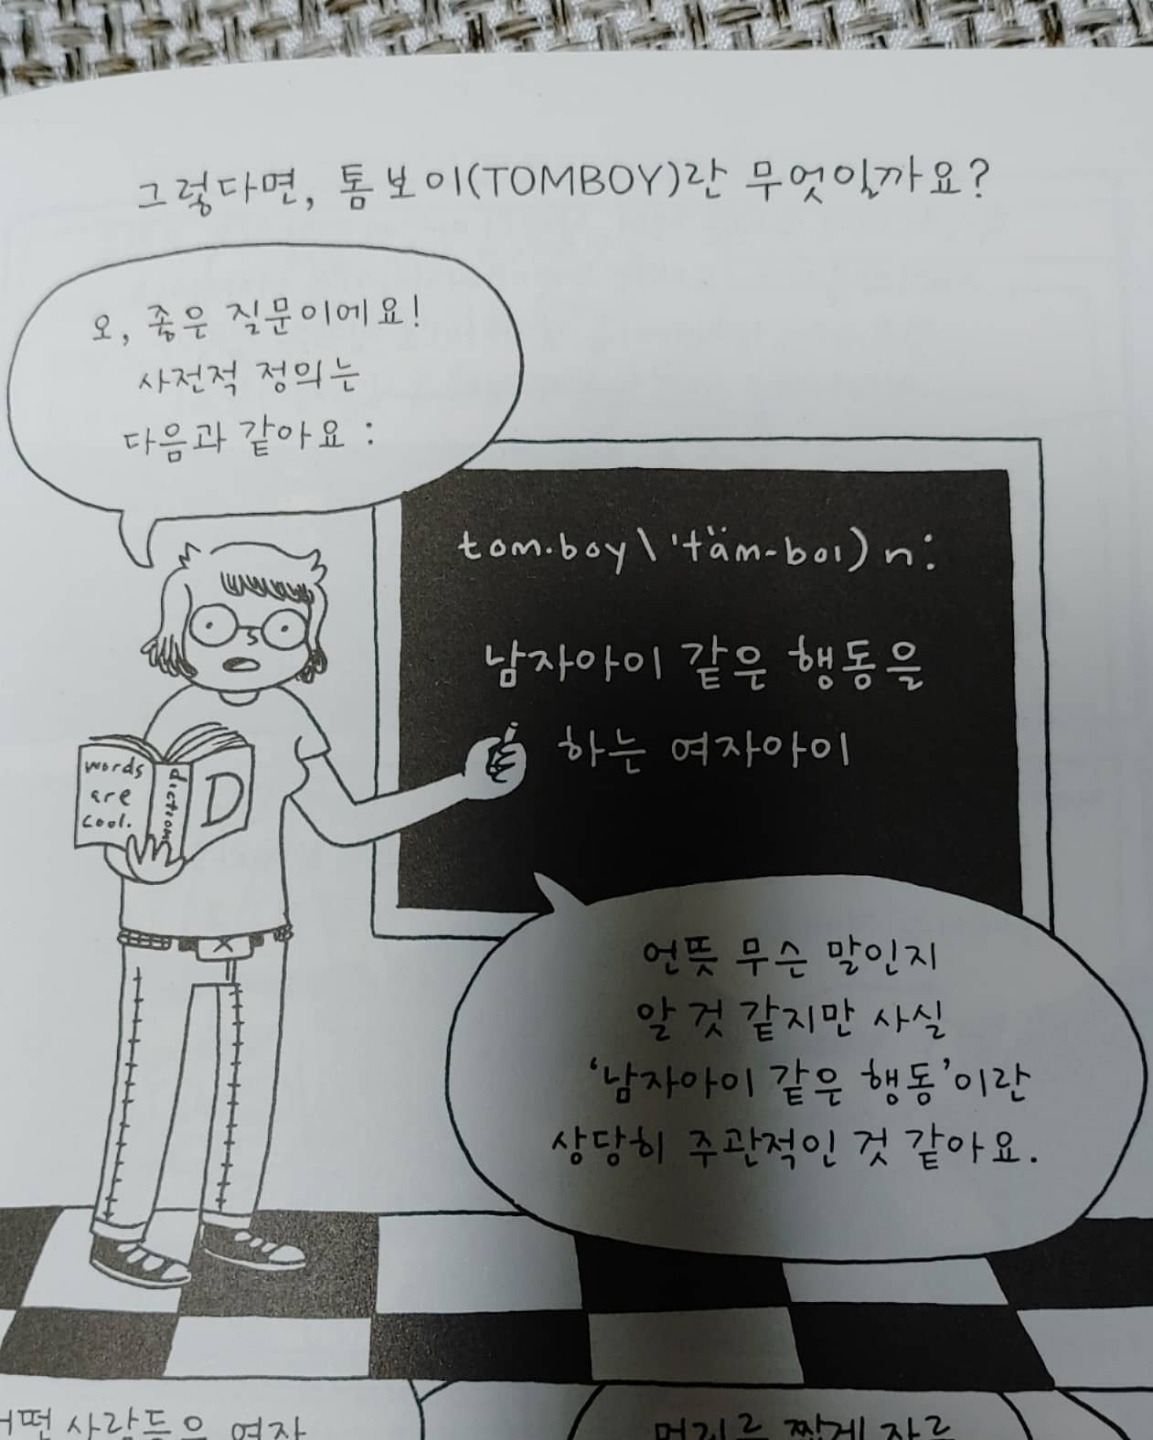 그렇다면, 톰보이(TOMBOY)란 무엇일까요?
오, 좋은 질문이에요!
사전적 정의는
다음과 같아요 :
tom·boy \ 'täm-boi) n:
남자아이 같은 행동을
하는 여자아이
words
are
cool.
diction
D
언뜻 무슨 말인지
알 것 같지만 사실
‘남자아이 같은 행동’이란
상당히 주관적인 것 같아요.
어떤 사람들은 여자
머리를 짧게 자르